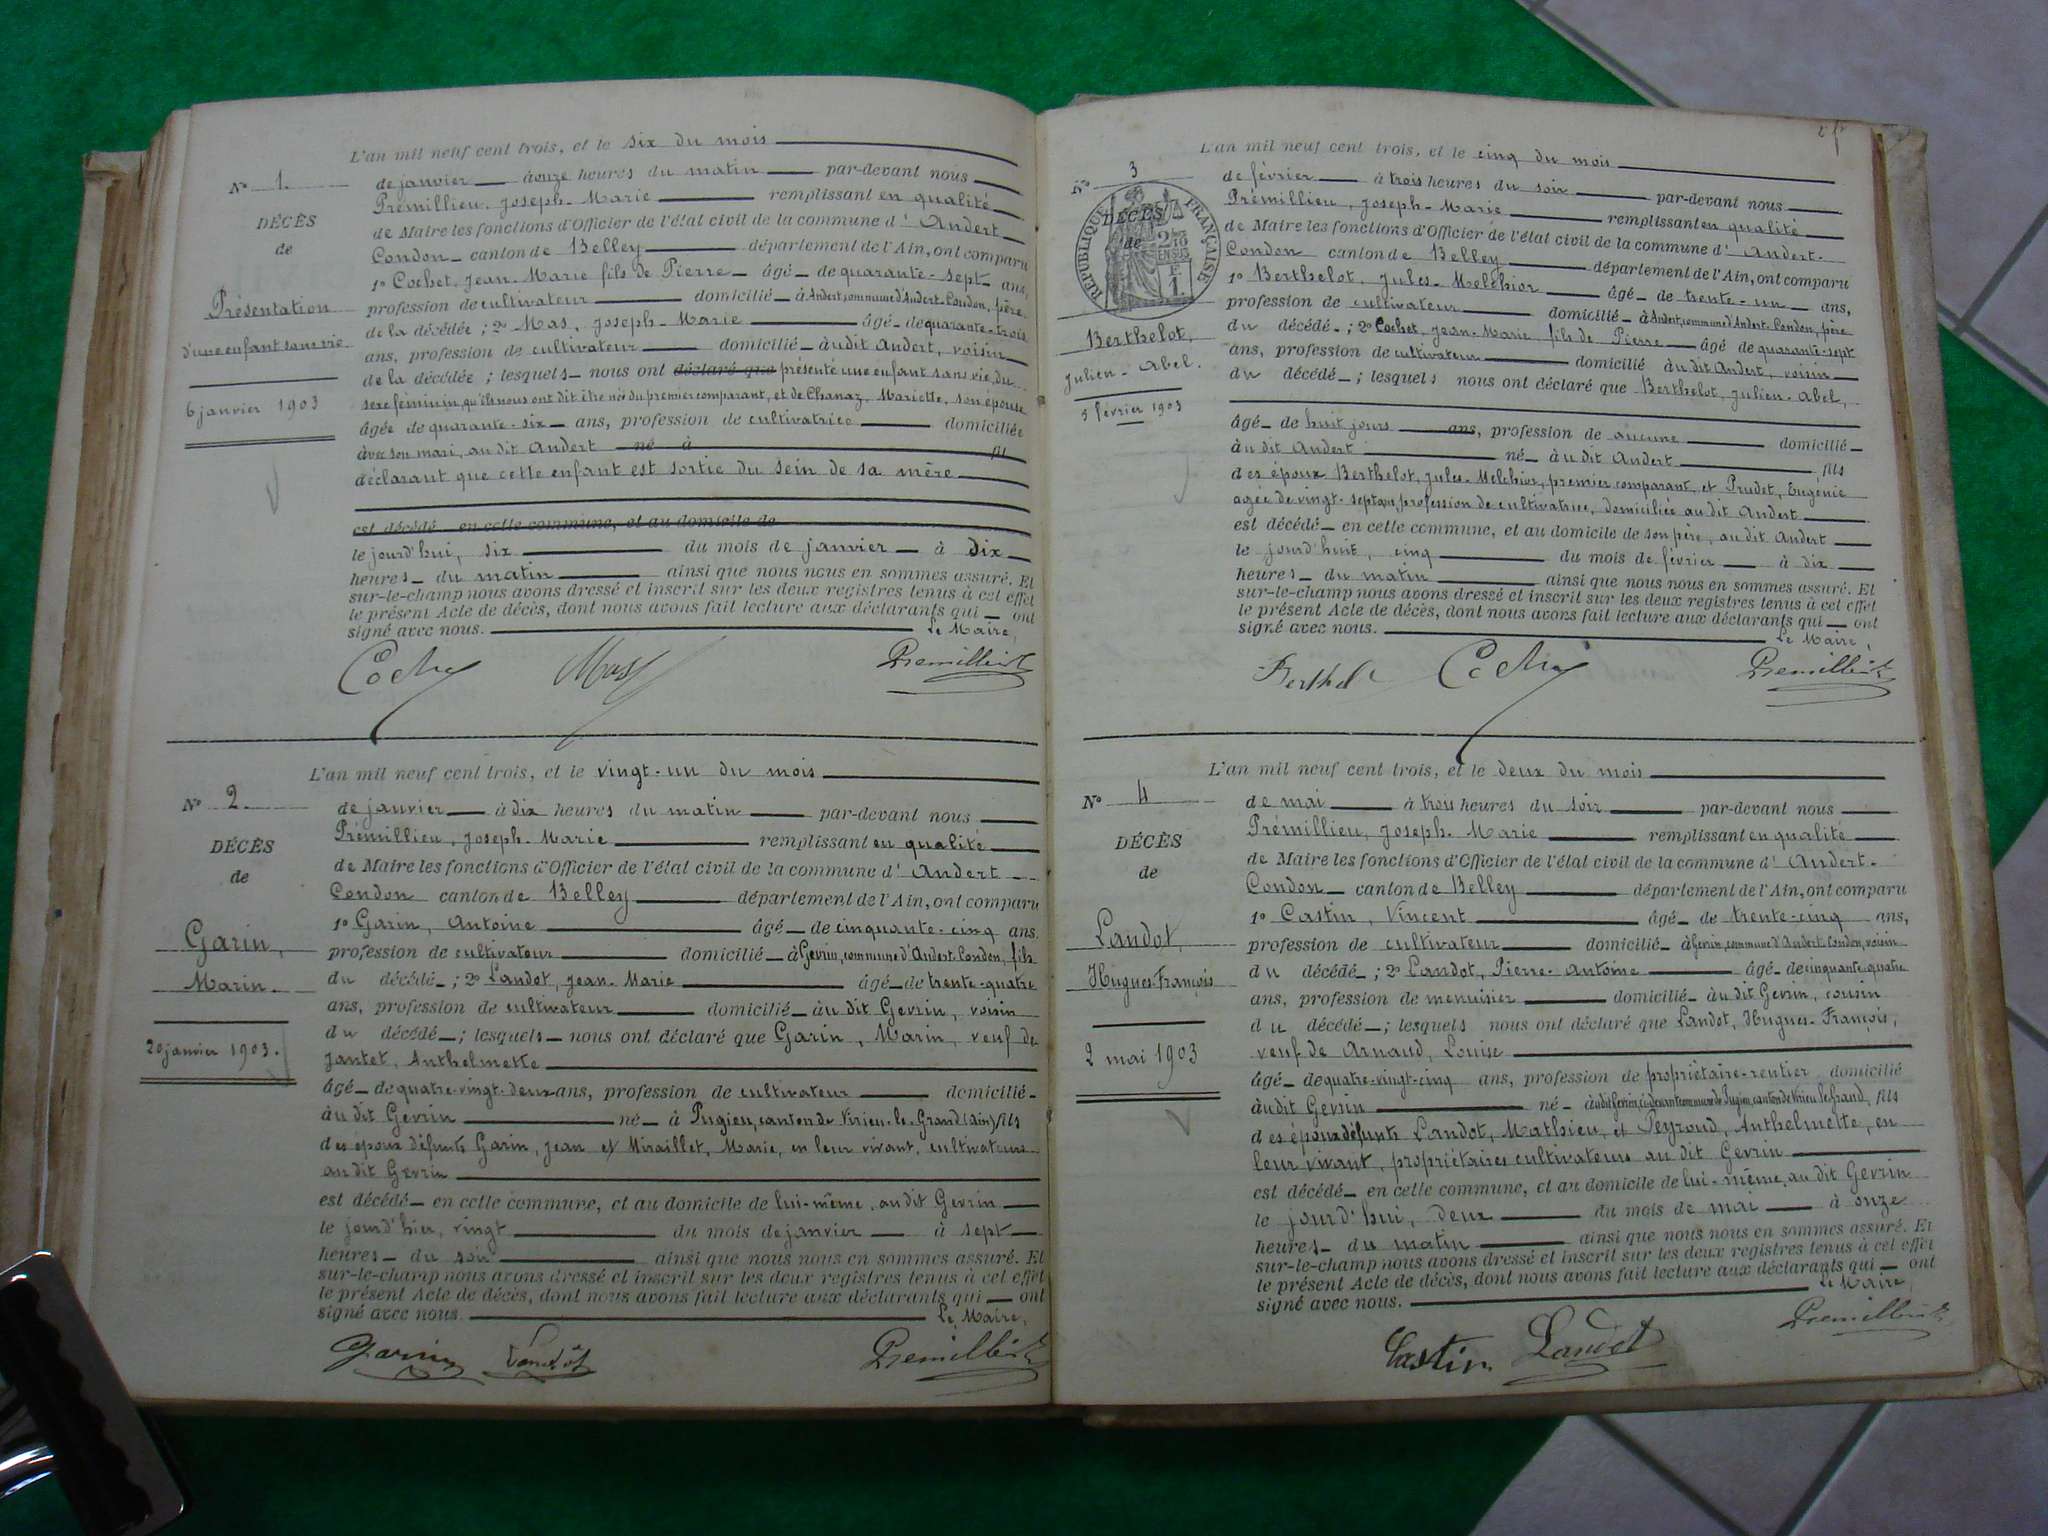 L'an mil neuf cent trois, et le six du mois
N° 1.
de janvier à onze heures du matin par-devant nous
Prémillieu, Joseph-Marie remplissant en qualité
DÉCÈS
de Maire les fonctions d'Officier de l'état civil de la commune d' Andert
de
Condon canton de Belley département de l'Ain, ont comparu
1° Cochet, Jean-Marie fils de Pierre âgé de quarante-sept ans,
Présentation
profession de cultivateur domicilié à Andert, commune d'Andert-Condon, père
de la décédée ; 2° Mas, Joseph-Marie âgé de quarante-trois
d'une enfant sans vie
ans, profession de cultivateur domicilié au dit Andert, voisin
de la décédée ; lesquels nous ont déclaré que présenté une enfant sans vie, du
6 janvier 1903
sexe féminin, qu'ils nous ont dit être née du premier comparant, et de Chanaz, Mariette, son épouse
âgée de quarante-six ans, profession de cultivatrice domiciliée
avec son mari, au dit Andert né à fil
déclarant que cette enfant est sortie du sein de sa mère
est décédé en cette commune, et au domicile de
le jourd'hui, six du mois de janvier à dix
heures du matin ainsi que nous nous en sommes assuré. Et
sur-le-champ nous avons dressé et inscrit sur les deux registres tenus à cet effet
le présent Acte de décès, dont nous avons fait lecture aux déclarants qui ont
signé avec nous. Le Maire,
Cochet Mas Premillieu
L'an mil neuf cent trois, et le vingt-un du mois
N° 2.
de janvier à dix heures du matin par-devant nous
Prémillieu, Joseph-Marie remplissant en qualité
DÉCÈS
de Maire les fonctions d'Officier de l'état civil de la commune d' Andert
de
Condon canton de Belley département de l'Ain, ont comparu
1° Garin, Antoine âgé de cinquante-cinq ans,
Garin,
profession de cultivateur domicilié à Gevrin, commune d'Andert-Condon, fils
Marin.
du décédé ; 2° Landot, Jean-Marie âgé de trente-quatre
ans, profession de cultivateur domicilié au dit Gevrin, voisin
du décédé ; lesquels nous ont déclaré que Garin, Marin, veuf de
20 janvier 1903.
Jantet, Anthelmette
âgé de quatre-vingt-deux ans, profession de cultivateur domicilié
au dit Gevrin né à Pugieu, canton de Virieu-le-Grand (Ain) fils
des époux défunts Garin, Jean et Miraillet, Marie, en leur vivant, cultivateurs
au dit Gevrin
est décédé en cette commune, et au domicile de lui-même, au dit Gevrin
le jourd'hier, vingt du mois de janvier à sept
heures du soir ainsi que nous nous en sommes assuré. Et
sur-le-champ nous avons dressé et inscrit sur les deux registres tenus à cet effet
le présent Acte de décès, dont nous avons fait lecture aux déclarants qui ont
signé avec nous. Le Maire,
Garin Landot Premillieu
L'an mil neuf cent trois, et le cinq du mois
N° 3
de février à trois heures du soir par-devant nous
Prémillieu, Joseph-Marie remplissant en qualité
DÉCÈS
de Maire les fonctions d'Officier de l'état civil de la commune d' Andert-
de
RÉPUBLIQUE FRANÇAISE
EN SUS
F.
1.
Condon canton de Belley département de l'Ain, ont comparu
1° Berthelot, Jules-Melchior âgé de trente-un ans,
profession de cultivateur domicilié à Andert, commune d'Andert-Condon, père
Berthelot,
du décédé ; 2° Cochet, Jean-Marie fils de Pierre âgé de quarante-sept
ans, profession de cultivateur domicilié au dit Andert, voisin
Julien-Abel.
du décédé ; lesquels nous ont déclaré que Berthelot, Julien-Abel,
5 février 1903
âgé de huit jours ans, profession de aucune domicilié
au dit Andert né au dit Andert fils
des époux Berthelot, Jules-Melchior, premier comparant, et Prudet, Eugénie
agée de vingt-sept ans, profession de cultivatrice, domiciliée au dit Andert
est décédé en cette commune, et au domicile de son père, au dit Andert
le jourd'huit, cinq du mois de février à dix
heures du matin ainsi que nous nous en sommes assuré. Et
sur-le-champ nous avons dressé et inscrit sur les deux registres tenus à cet effet
le présent Acte de décès, dont nous avons fait lecture aux déclarants qui ont
signé avec nous. Le Maire,
Cochet Premillieu
L'an mil neuf cent trois, et le deux du mois
N° 4
de mai à trois heures du soir par-devant nous
Prémillieu, Joseph-Marie remplissant en qualité
DÉCÈS
de Maire les fonctions d'Officier de l'état civil de la commune d' Andert-
de
Condon canton de Belley département de l'Ain, ont comparu
1° Castin, Vincent âgé de trente-cinq ans,
Landot,
profession de cultivateur domicilié à Gevrin, commune d'Andert-Condon, voisin
du décédé ; 2° Landot, Pierre-Antoine âgé de cinquante-quatre
Hugues-François
ans, profession de menuisier domicilié au dit Gevrin, cousin
du décédé ; lesquels nous ont déclaré que Landot, Hugues-François,
2 mai 1903
veuf de Arnaud, Louise
âgé de quatre-vingt-cinq ans, profession de propriétaire-rentier domicilié
au dit Gevrin né au dit Gevrin, ci-devant commune de Pugieu, canton de Virieu-le-Grand, fils
des époux défunts Landot, Mathieu, et Peyroud, Anthelmette, en
leur vivant, propriétaires cultivateurs au dit Gevrin
est décédé en cette commune, et au domicile de lui-même, au dit Gevrin
le jourd'hui, deux du mois de mai à onze
heures du matin ainsi que nous nous en sommes assuré. Et
sur-le-champ nous avons dressé et inscrit sur les deux registres tenus à cet effet
le présent Acte de décès, dont nous avons fait lecture aux déclarants qui ont
signé avec nous. Le Maire,
Castin Landot Premillieu